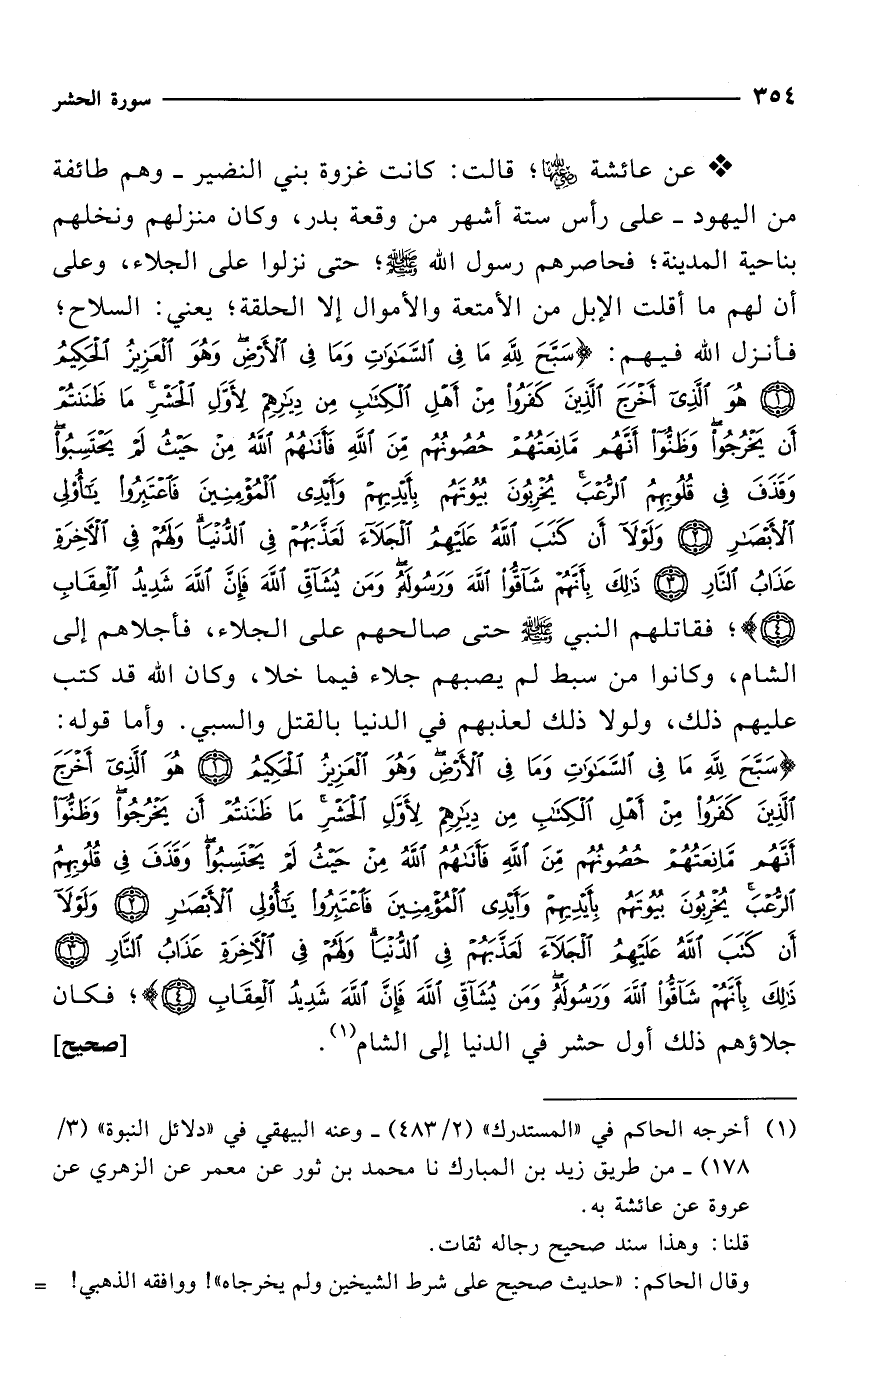 ٣٥٤ سورة الحشر
❖ عن عائشة رضي الله عنها؛ قالت: كانت غزوة بني النضير ـ وهم طائفة
من اليهود ـ على رأس ستة أشهر من وقعة بدر، وكان منزلهم ونخلهم
بناحية المدينة؛ فحاصرهم رسول الله ﷺ؛ حتى نزلوا على الجلاء، وعلى
أن لهم ما أقلت الإبل من الأمتعة والأموال إلا الحلقة؛ يعني: السلاح؛
فأنزل الله فيهم: ﴿سَبَّحَ لِلَّهِ مَا فِى ٱلسَّمَٰوَٰتِ وَمَا فِى ٱلْأَرْضِۖ وَهُوَ ٱلْعَزِيزُ ٱلْحَكِيمُ
۝١ هُوَ ٱلَّذِىٓ أَخْرَجَ ٱلَّذِينَ كَفَرُوا۟ مِنْ أَهْلِ ٱلْكِتَٰبِ مِن دِيَٰرِهِمْ لِأَوَّلِ ٱلْحَشْرِۚ مَا ظَنَنتُمْ
أَن يَخْرُجُوا۟ۖ وَظَنُّوٓا۟ أَنَّهُم مَّانِعَتُهُمْ حُصُونُهُم مِّنَ ٱللَّهِ فَأَتَىٰهُمُ ٱللَّهُ مِنْ حَيْثُ لَمْ يَحْتَسِبُوا۟ۖ
وَقَذَفَ فِى قُلُوبِهِمُ ٱلرُّعْبَۚ يُخْرِبُونَ بُيُوتَهُم بِأَيْدِيهِمْ وَأَيْدِى ٱلْمُؤْمِنِينَ فَٱعْتَبِرُوا۟ يَٰٓأُو۟لِى
ٱلْأَبْصَٰرِ ۝٢ وَلَوْلَآ أَن كَتَبَ ٱللَّهُ عَلَيْهِمُ ٱلْجَلَآءَ لَعَذَّبَهُمْ فِى ٱلدُّنْيَاۖ وَلَهُمْ فِى ٱلْءَاخِرَةِ
عَذَابُ ٱلنَّارِ ۝٣ ذَٰلِكَ بِأَنَّهُمْ شَآقُّوا۟ ٱللَّهَ وَرَسُولَهُۥۖ وَمَن يُشَآقِّ ٱللَّهَ فَإِنَّ ٱللَّهَ شَدِيدُ ٱلْعِقَابِ
۝٤﴾؛ فقاتلهم النبي ﷺ حتى صالحهم على الجلاء، فأجلاهم إلى
الشام، وكانوا من سبط لم يصبهم جلاء فيما خلا، وكان الله قد كتب
عليهم ذلك، ولولا ذلك لعذبهم في الدنيا بالقتل والسبي. وأما قوله:
﴿سَبَّحَ لِلَّهِ مَا فِى ٱلسَّمَٰوَٰتِ وَمَا فِى ٱلْأَرْضِۖ وَهُوَ ٱلْعَزِيزُ ٱلْحَكِيمُ ۝١ هُوَ ٱلَّذِىٓ أَخْرَجَ
ٱلَّذِينَ كَفَرُوا۟ مِنْ أَهْلِ ٱلْكِتَٰبِ مِن دِيَٰرِهِمْ لِأَوَّلِ ٱلْحَشْرِۚ مَا ظَنَنتُمْ أَن يَخْرُجُوا۟ۖ وَظَنُّوٓا۟
أَنَّهُم مَّانِعَتُهُمْ حُصُونُهُم مِّنَ ٱللَّهِ فَأَتَىٰهُمُ ٱللَّهُ مِنْ حَيْثُ لَمْ يَحْتَسِبُوا۟ۖ وَقَذَفَ فِى قُلُوبِهِمُ
ٱلرُّعْبَۚ يُخْرِبُونَ بُيُوتَهُم بِأَيْدِيهِمْ وَأَيْدِى ٱلْمُؤْمِنِينَ فَٱعْتَبِرُوا۟ يَٰٓأُو۟لِى ٱلْأَبْصَٰرِ ۝٢ وَلَوْلَآ
أَن كَتَبَ ٱللَّهُ عَلَيْهِمُ ٱلْجَلَآءَ لَعَذَّبَهُمْ فِى ٱلدُّنْيَاۖ وَلَهُمْ فِى ٱلْءَاخِرَةِ عَذَابُ ٱلنَّارِ ۝٣
ذَٰلِكَ بِأَنَّهُمْ شَآقُّوا۟ ٱللَّهَ وَرَسُولَهُۥۖ وَمَن يُشَآقِّ ٱللَّهَ فَإِنَّ ٱللَّهَ شَدِيدُ ٱلْعِقَابِ ۝٤﴾؛ فكان
جلاؤهم ذلك أول حشر في الدنيا إلى الشام(١). [صحيح]
(١) أخرجه الحاكم في «المستدرك» (٢/ ٤٨٣) ـ وعنه البيهقي في «دلائل النبوة» (٣/
١٧٨) ـ من طريق زيد بن المبارك نا محمد بن ثور عن معمر عن الزهري عن
عروة عن عائشة به.
قلنا: وهذا سند صحيح رجاله ثقات.
وقال الحاكم: «حديث صحيح على شرط الشيخين ولم يخرجاه»! ووافقه الذهبي! =